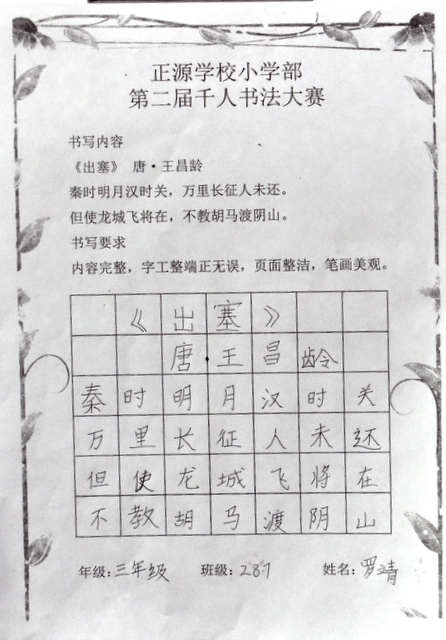 正源学校小学部
第二届千人书法大赛
书写内容
《出塞》 唐·王昌龄
秦时明月汉时关，万里长征人未还。
但使龙城飞将在，不教胡马渡阴山。
书写要求
内容完整，字工整端正无误，页面整洁，笔画美观。
《出塞》
唐·王昌龄
秦时明月汉时关
万里长征人未还
但使龙城飞将在
不教胡马渡阴山
年级：三年级 班级：287 姓名：罗靖